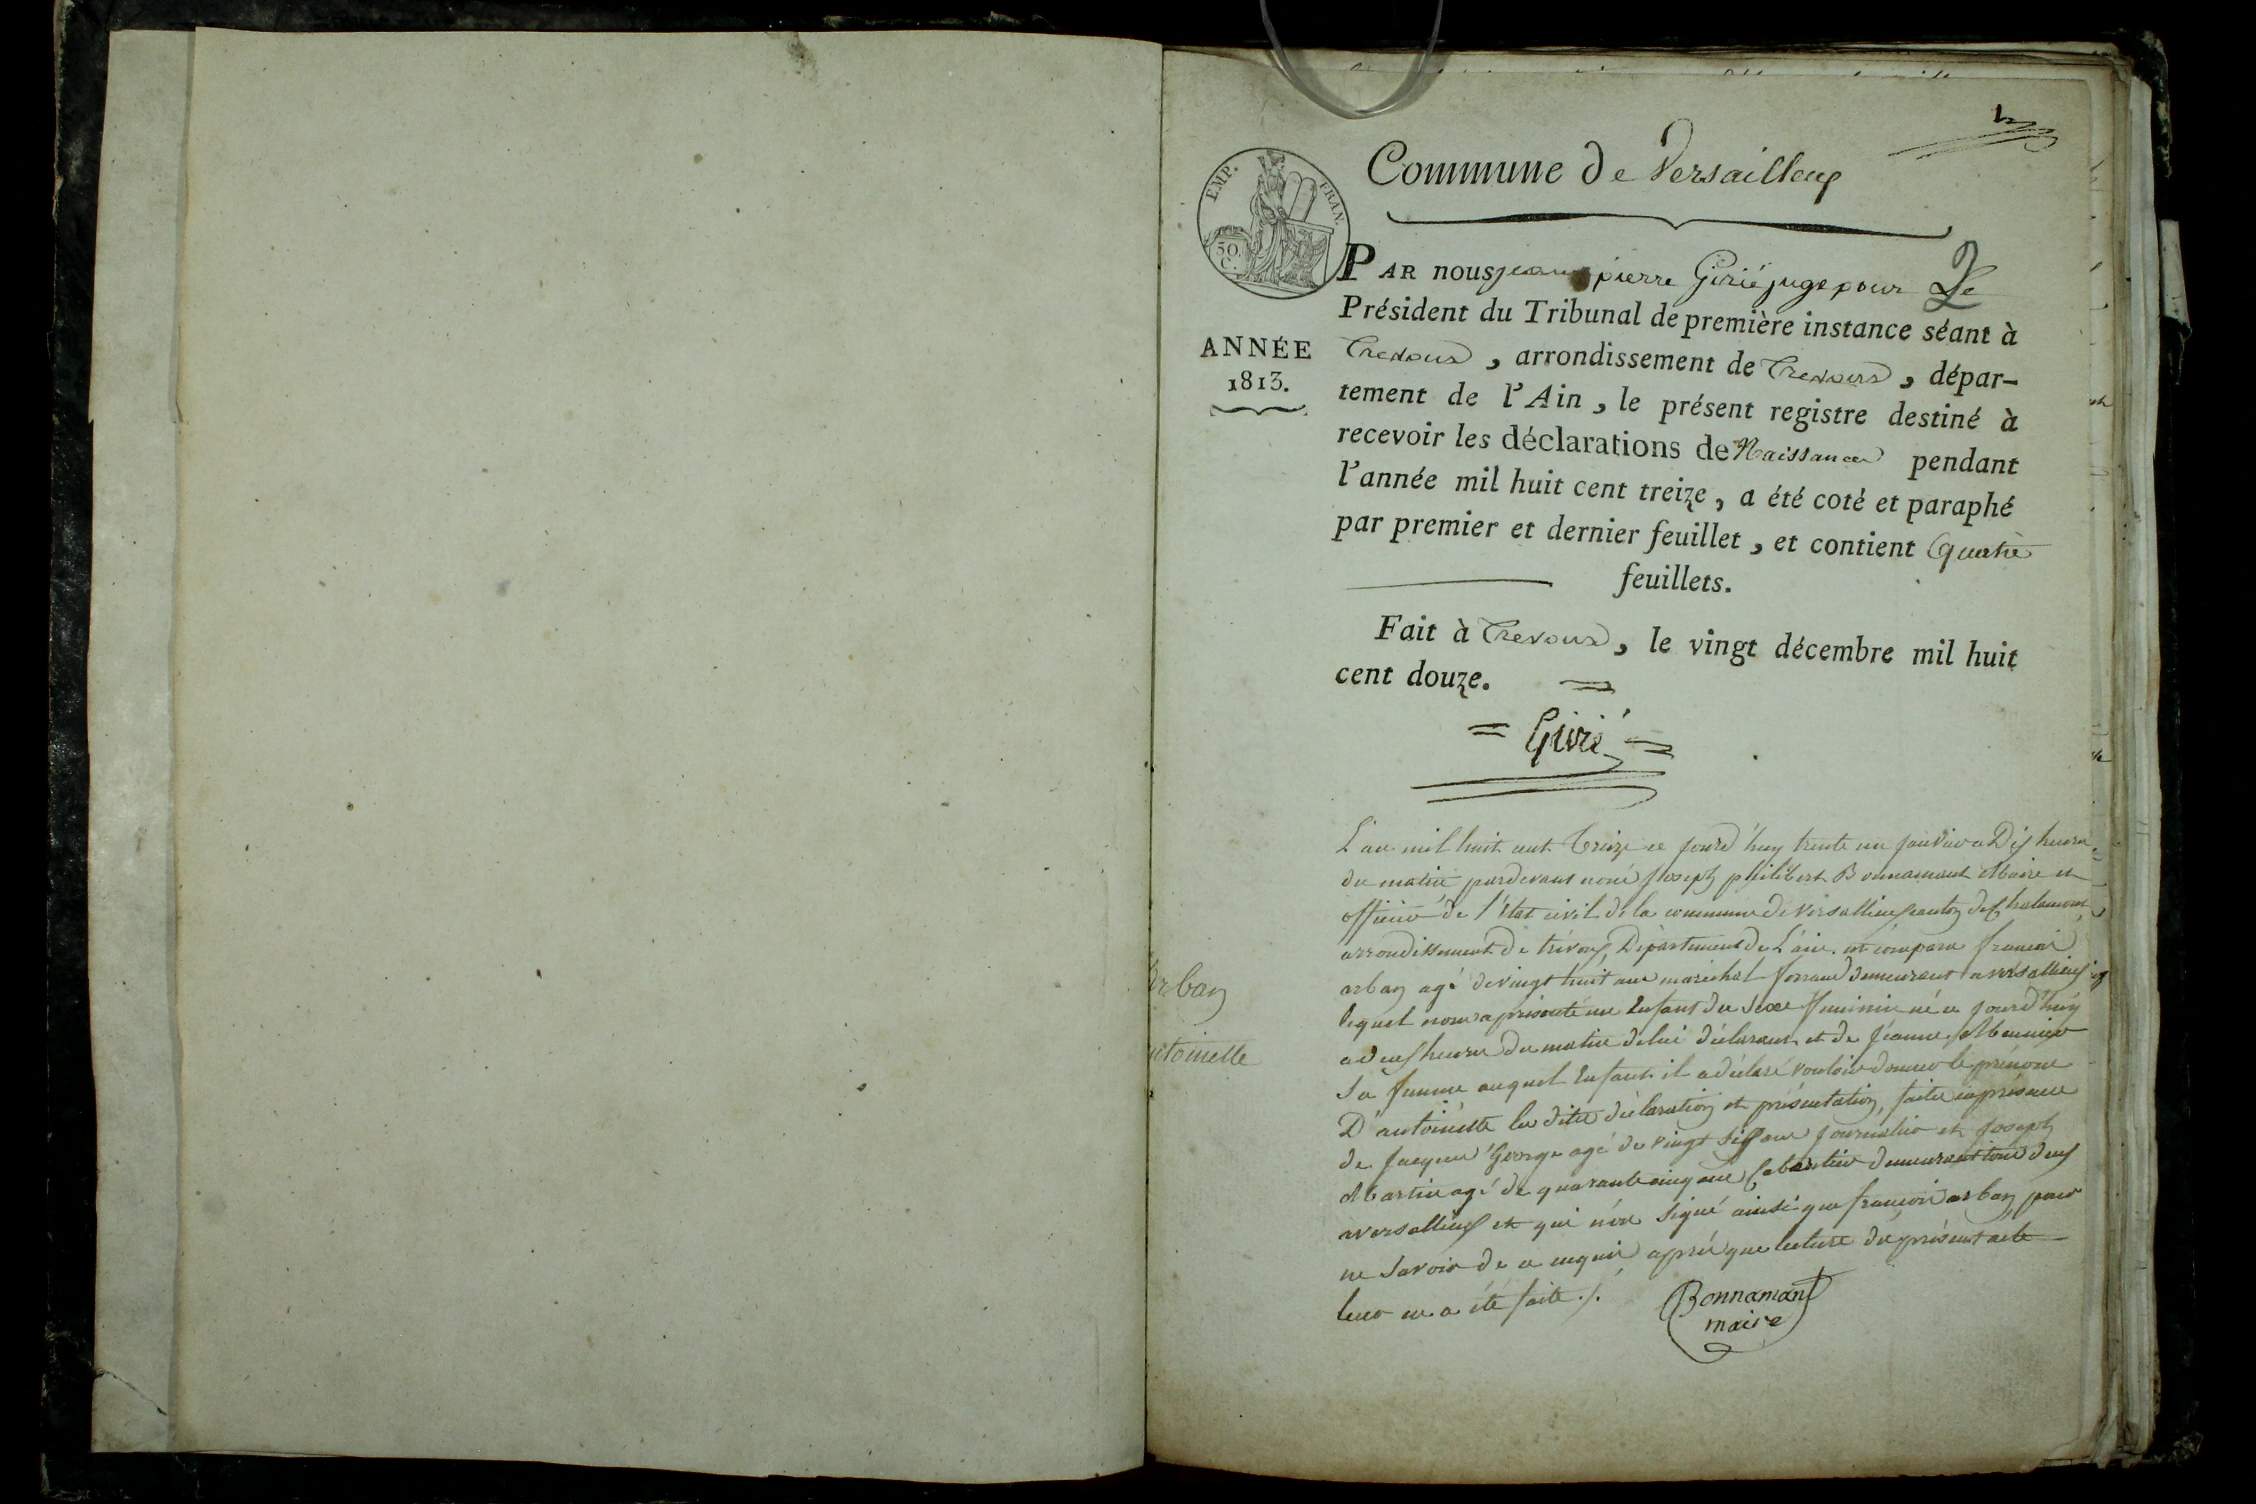 Commune de Versailleux
EMP. FRAN.
50 C.
ANNÉE
1813.
PAR nous jean pierre Girié juge pour Le
Président du Tribunal de première instance séant à
Trevoux, arrondissement de Trevoux, dépar-
tement de l'Ain, le présent registre destiné à
recevoir les déclarations de Naissances pendant
l'année mil huit cent treize, a été coté et paraphé
par premier et dernier feuillet, et contient quatre
feuillets.
Fait à Trevoux, le vingt décembre mil huit
cent douze.
Girié
arban
antoinette
L'an mil huit cent treize ce jourd'huy trente un janvier a Dix heures
du matin pardevant nous joseph philibert Bonnamant Maire et
officier de l'état civil de la commune de versallieux canton de chalamont
arrondissement de trévoux, Département de L'ain est comparu francois
arban agé de vingt huit ans maréchal ferrant demeurant a versallieux
lequel nous a présenté un Enfant du Sexe feminin né ce jourd'huy
a deux heures du matin de lui déclarant et de jeanne Meunier
Sa femme auquel Enfant il a déclaré vouloir donner le prénom
D'antoinette les dites déclaration et présentation, faites en présence
de jacques George agé de vingt six ans journalier et joseph
Martin agé de quarante cinq ans Cabartier demeurant tous deux
a versallieux et qui n'ont Signé ainsi que francois arban pour
ne Savoir de ce enquis après que lecture du présent acte
leur en a été faite ./.
Bonnamant
maire